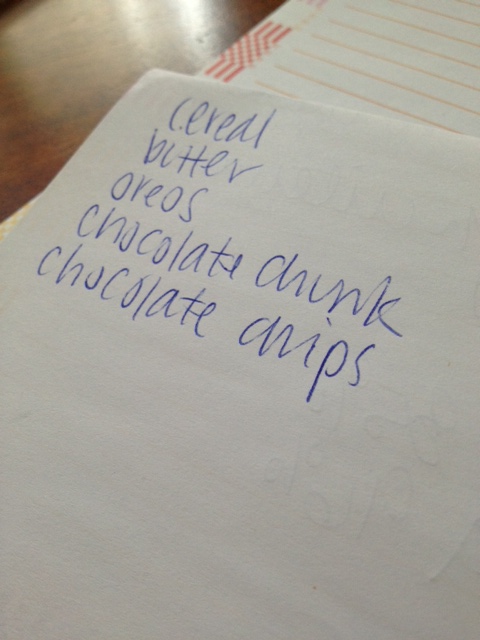 cereal
butter
oreos
chocolate chunk
chocolate chips